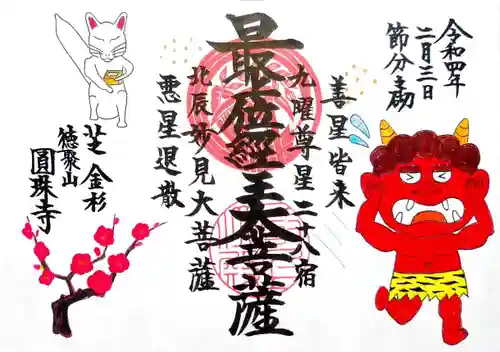 令和四年
二月三日
節分主助
善星皆来
九曜尊星二十八宿
最位經王大菩薩
北辰妙見大菩薩
悪星退散
芝金杉
徳聚山
圓珠寺